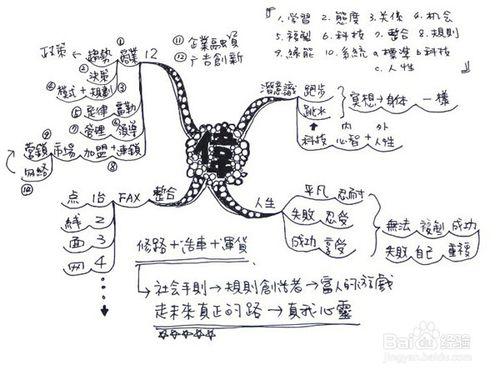 「1.學習 2.態度 3.关係 4.机会
5.複製 6.科技 7.整合 8.規則
9.綠能 10.系統 a.標準 b.科技
c.人性」
⑪企業融資
⑫广告創新
12
①商業
趨勢
政策
②
決策
③
④模式+規劃
⑤紀律 富勤
⑥
⑦管理 領導
⑧
加盟+連鎖
市場
⑨
營銷
网絡
⑩
偉
潛意識
跑步
跳水
冥想→身体 一樣
內 外
科技 心智+人性
人生
平凡 忍耐
失敗 忍受
成功 享受
無法 複製 成功
失敗 自己 重複
整合
FAX
点 治
綫 2
面 3
网 4
修路+造車+運貨
社会手則→規則創造者→富人的游戲
走未來真正的路→真我心靈
☆☆☆☆☆
Bai 经验
jingyan.baidu.com